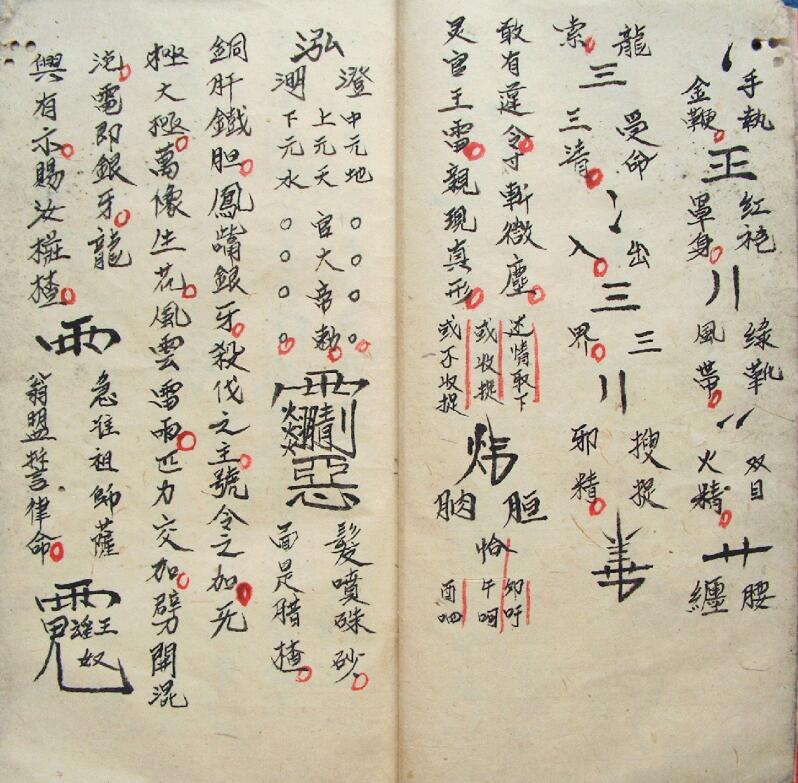 手執金鞭
王
紅袍罩身
川
綠靴風帶
双目火精
艹
腰纏
龍索
三
受命三清
出入
三
三界
川
搜捉邪精
敢有違令寸斬微塵
述情取下
或收捉
灵官王雷親現真形
或不收捉
炜
胆
怡
卯吁
午呵
酉呬
泓
澄
中元地
上元天官大帝勅
下元水
惡
髮噴硃砂
面是腊楂
銅肝鐵胆鳳嘴銀牙殺伐之主號令之加死
極大極萬像生花風雲雷雨匹力交加劈開混
沌電即銀牙龍
興有示賜汝楂
急准祖師薩
翁盟誓律命
王
奴